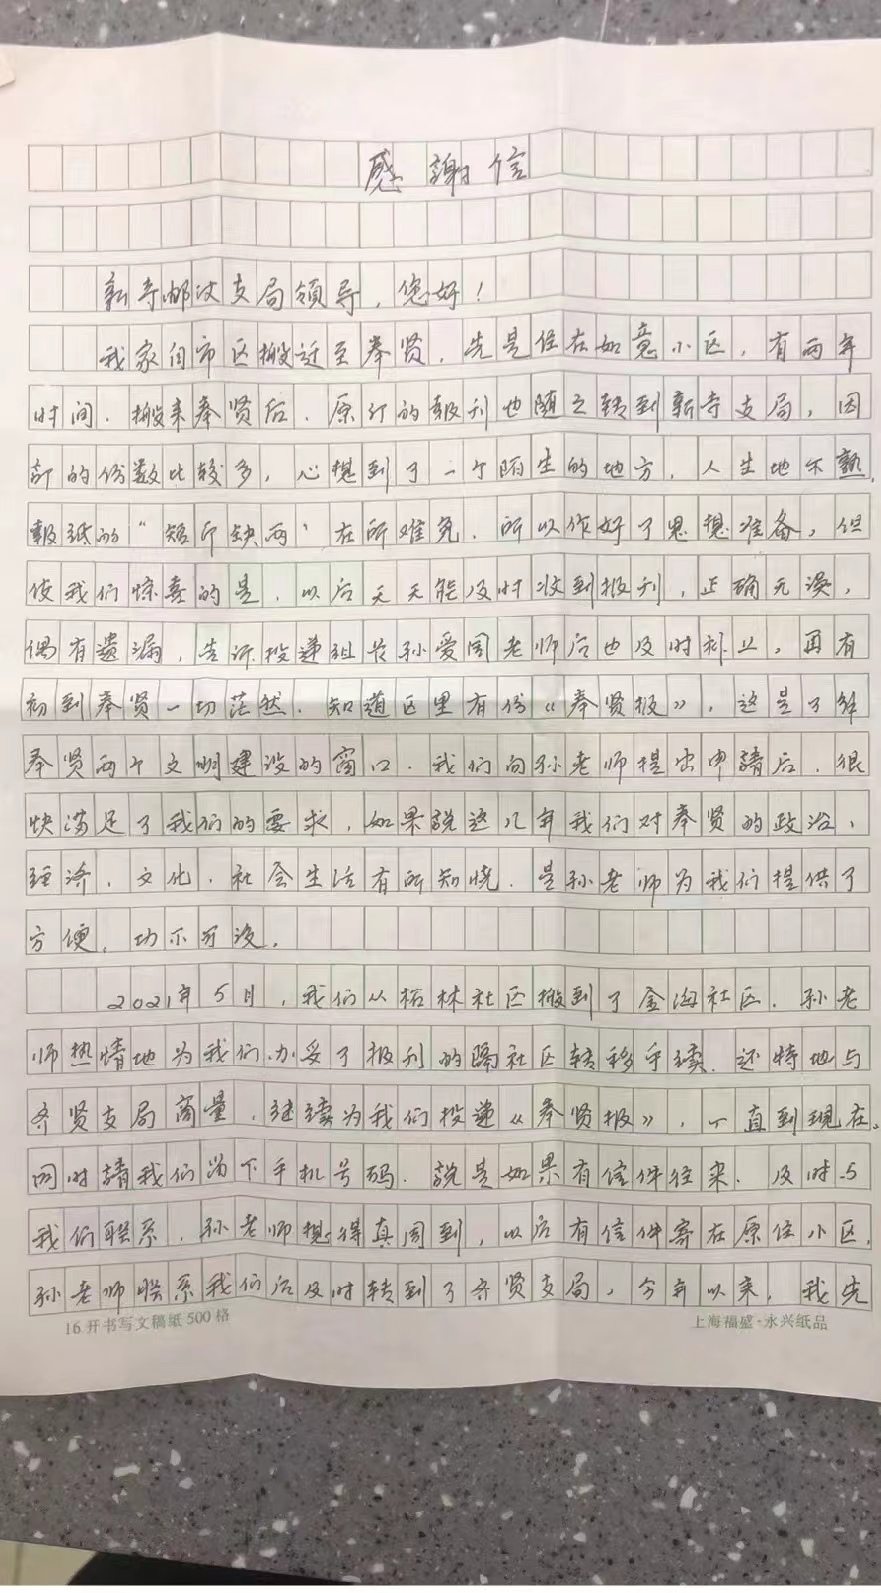 感謝信
新寺邮政支局领导，您好！
我家自市区搬迁至奉贤，先是住在如意小区，有两年
时间．搬来奉贤后．原订的報刊也随之转到新寺支局，因
訂的份数比较多，心想到了一个陌生的地方，人生地不熟，
報纸的“短斤缺两”在所难免．所以作好了思想准备，但
使我们惊喜的是，以后天天能及时收到报刊，正确无误，
偶有遗漏，告诉投递组长孙爱国老师后也及时补上，再有
初到奉贤一切茫然．知道区里有份《奉贤报》，这是了解
奉贤两个文明建设的窗口．我们向孙老师提出申請后．很
快满足了我们的要求，如果說这几年我们对奉贤的政治，
经济，文化，社会生活有所知晓．是孙老师为我们提供了
方便，功不可没．
2021年5月，我们从柘林社区搬到了金海社区．孙老
师热情地为我们办妥了报刊的隔社区转移手续．还特地与
齐贤支局商量，继续为我们投递《奉贤报》，一直到现在。
同时請我们留下手机号码．說是如果有信件往来．及时与
我们联系．孙老师想得真周到，以后有信件寄在原住小区，
孙老师联系我们后及时转到了齐贤支局，今年以来，我先
16开书写文稿纸500格
上海福盛·永兴纸品